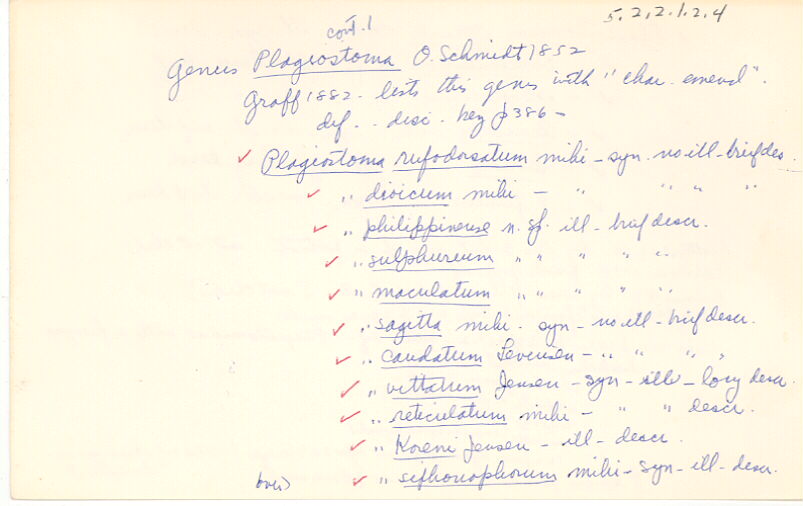 5.2.2.1.2.4
cont. 1
Genus Plagiostoma O. Schmidt 1852
Graff 1882 - lists this genus with "char. emend".
def. - desc. key p 386 -
✓ Plagiostoma rufodorsatum mihi - syn. no ill - brief des.
✓ " dioicum mihi - " " " "
✓ " philippinense n. sp. ill - brief descr.
✓ " sulphureum " " " " "
✓ " maculatum " " " " "
✓ " sagitta mihi - syn - no ill - brief descr.
✓ " caudatum Levinsen - " " " "
✓ " vittatum Jensen - syn - ill - long descr.
✓ " reticulatum mihi - " " descr.
✓ " Koreni Jensen - ill - descr.
(over) ✓ " siphonophorum mihi - syn - ill - descr.